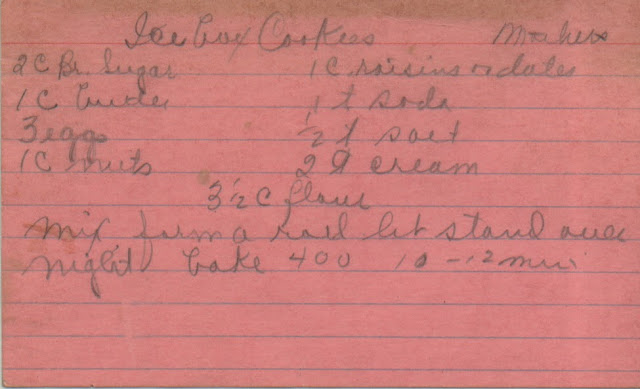 Ice box Cookies Mothers
2 C Br. Sugar 1 C raisins or dates
1 C butter 1 t soda
3 eggs 1/2 t salt
1 C nuts 2 T cream
3 1/2 C flour
Mix form a roll let stand over
night bake 400 10-12 min